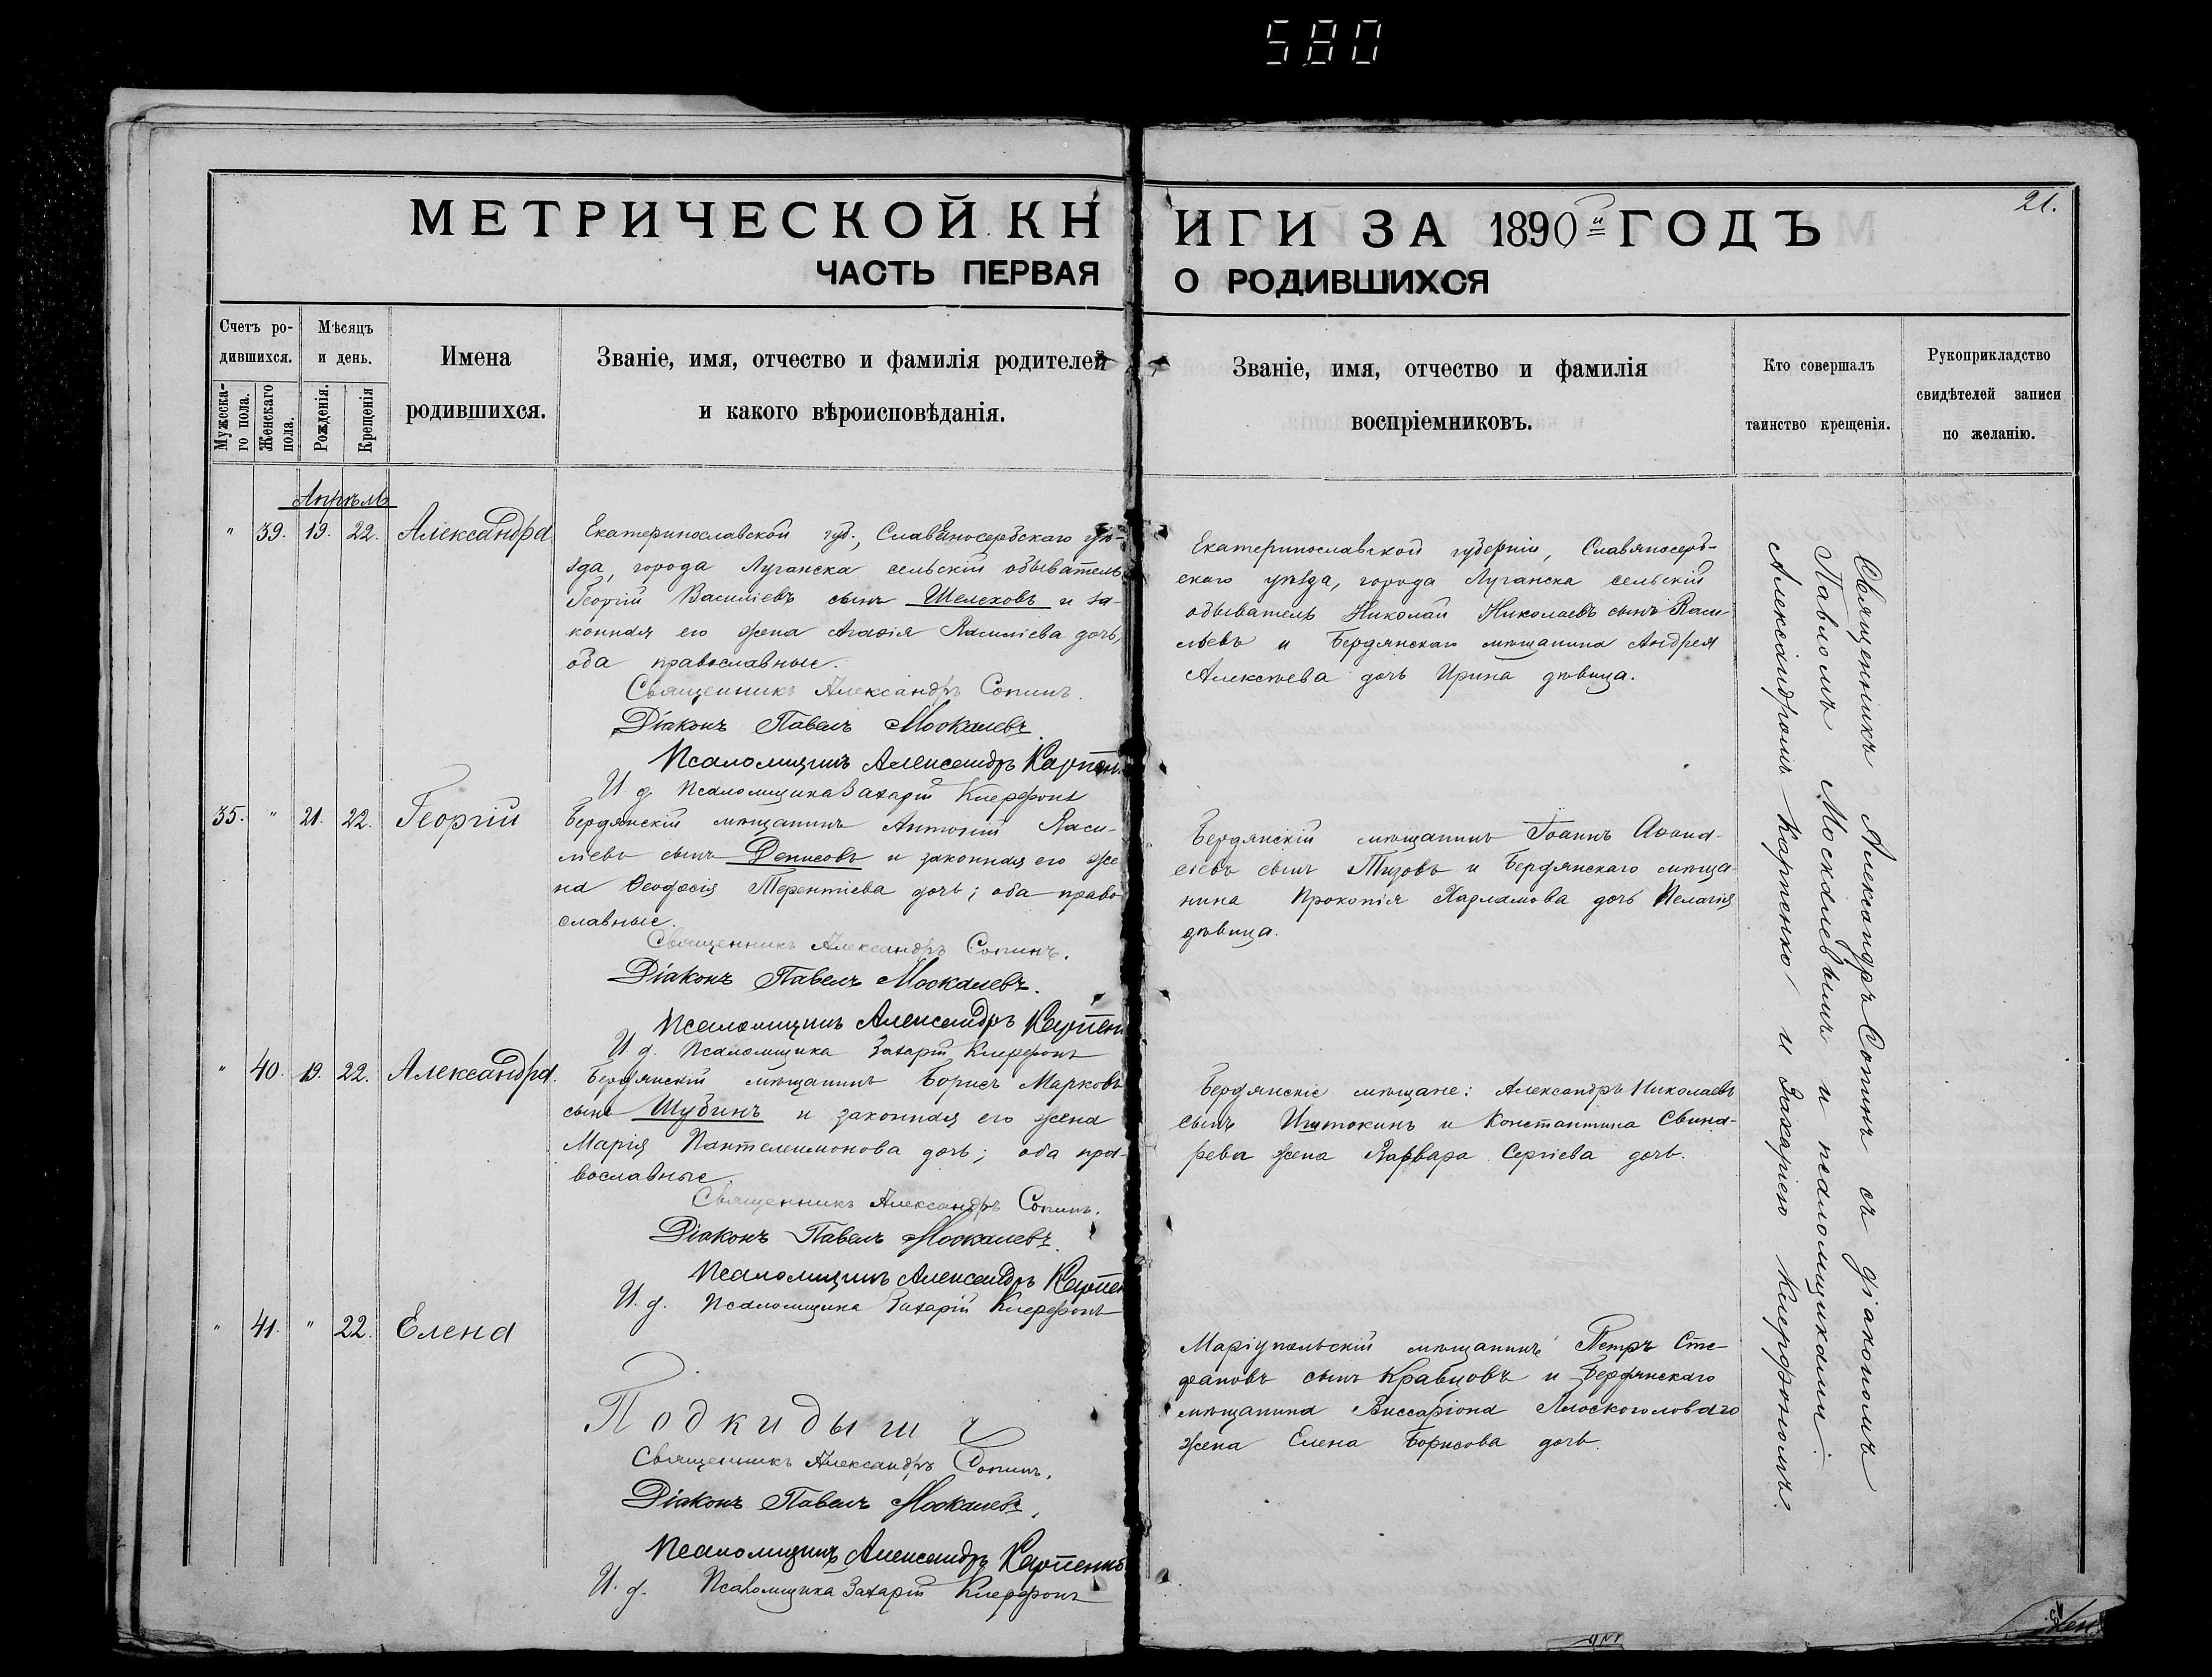 580
МЕТРИЧЕСКОЙ КНИГИ ЗА 1890й ГОДЪ
21.
ЧАСТЬ ПЕРВАЯ О РОДИВШИХСЯ
Счетъ ро-
дившихся.
Мужеска-
го пола.
Женскаго
пола.
Мѣсяцъ
и день.
Рожденія.
Крещенія
Имена
родившихся.
Званіе, имя, отчество и фамилія родителей
и какого вѣроисповѣданія.
Званіе, имя, отчество и фамилія
воспріемниковъ.
Кто совершалъ
таинство крещенія.
Рукоприкладство
свидѣтелей записи
по желанію.
Апрѣль
" 39. 19. 22. Александра
Екатеринославской губ., Славяносербскаго уѣ-
зда, города Луганска сельскій обыватель
Георгій Василіевъ сынъ Шелеховъ и за-
конная его жена Агафія Василіева дочь,
оба православные.
Священникъ Александръ Сопинъ.
Діаконъ Павелъ Москалевъ
Псаломщикъ Александръ Карпен
И д. Псаломщика Захарій Клерфонъ
Екатеринославской губерніи, Славяносерб-
скаго уѣзда, города Луганска сельскій
обыватель Николай Николаевъ сынъ Васи-
льевъ и Бердянскаго мѣщанина Андрея
Алексѣева дочь Ирина дѣвица.
35. " 21. 22. Георгій
Бердянскій мѣщанинъ Антоній Васи-
ліевъ сынъ Денисовъ и законная его же
на Ѳеодосія Терентіева дочь; оба право
славные.
Священникъ Александръ Сопинъ.
Діаконъ Павелъ Москалевъ.
Псаломщикъ Александръ Карпен
И д. Псаломщика Захарій Клерфонъ
Бердянскій мѣщанинъ Іоаннъ Аѳана-
сіевъ сынъ Тизовъ и Бердянскаго мѣща
нина Прокопія Харламова дочь Пелагія
дѣвица.
" 40. 19. 22. Александра.
Бердянскій мѣщанинъ Борисъ Марковъ
сынъ Шубинъ и законная его жена
Марія Пантелеимонова дочь; оба пра-
вославные
Священникъ Александръ Сопинъ.
Діаконъ Павелъ Москалевъ.
Псаломщикъ Александръ Карпен
И. д. Псаломщика Захарій Клерфонъ
Бердянскіе мѣщане: Александръ Николаевъ
сынъ Ишутокинъ и Константина Свина-
рева жена Варвара Сергіева дочь.
" 41. " 22. Елена
Подкидышъ
Священникъ Александръ Сопинъ.
Діаконъ Павелъ Москалевъ.
Псаломщикъ Александръ Карпенко
И. д. Псаломщика Захарій Клерфонъ
Маріупольскій мѣщанинъ Петръ Сте-
фановъ сынъ Кравцовъ и Бердянскаго
мѣщанина Виссаріона Плоскоголоваго
жена Елена Борисова дочь.
Священникъ Александръ Сопинъ съ діакономъ
Павломъ Москалевымъ и псаломщиками:
Александромъ Карпенко и Захаріею Клерфономъ.